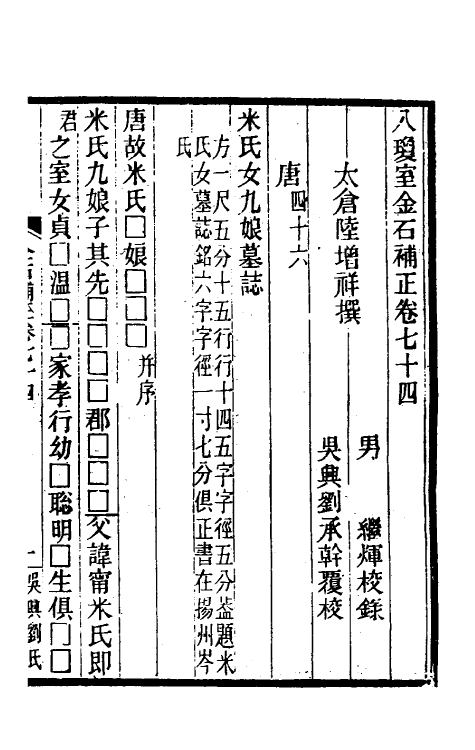 八瓊室金石補正卷七十四
太倉陸增祥撰
男　繼煇校錄
吳興劉承幹覆校
唐四十六
米氏女九娘墓誌
方一尺五分十五行行十四五字字徑五分葢題米
氏女墓誌銘六字字徑一寸七分俱正書在揚州岑
氏
唐故米氏□娘□□□并序
米氏九娘子其先□□□□郡□□□父諱甯米氏即
君之室女貞□温□□家孝行幼□聡明□生俱□□
吳興劉氏